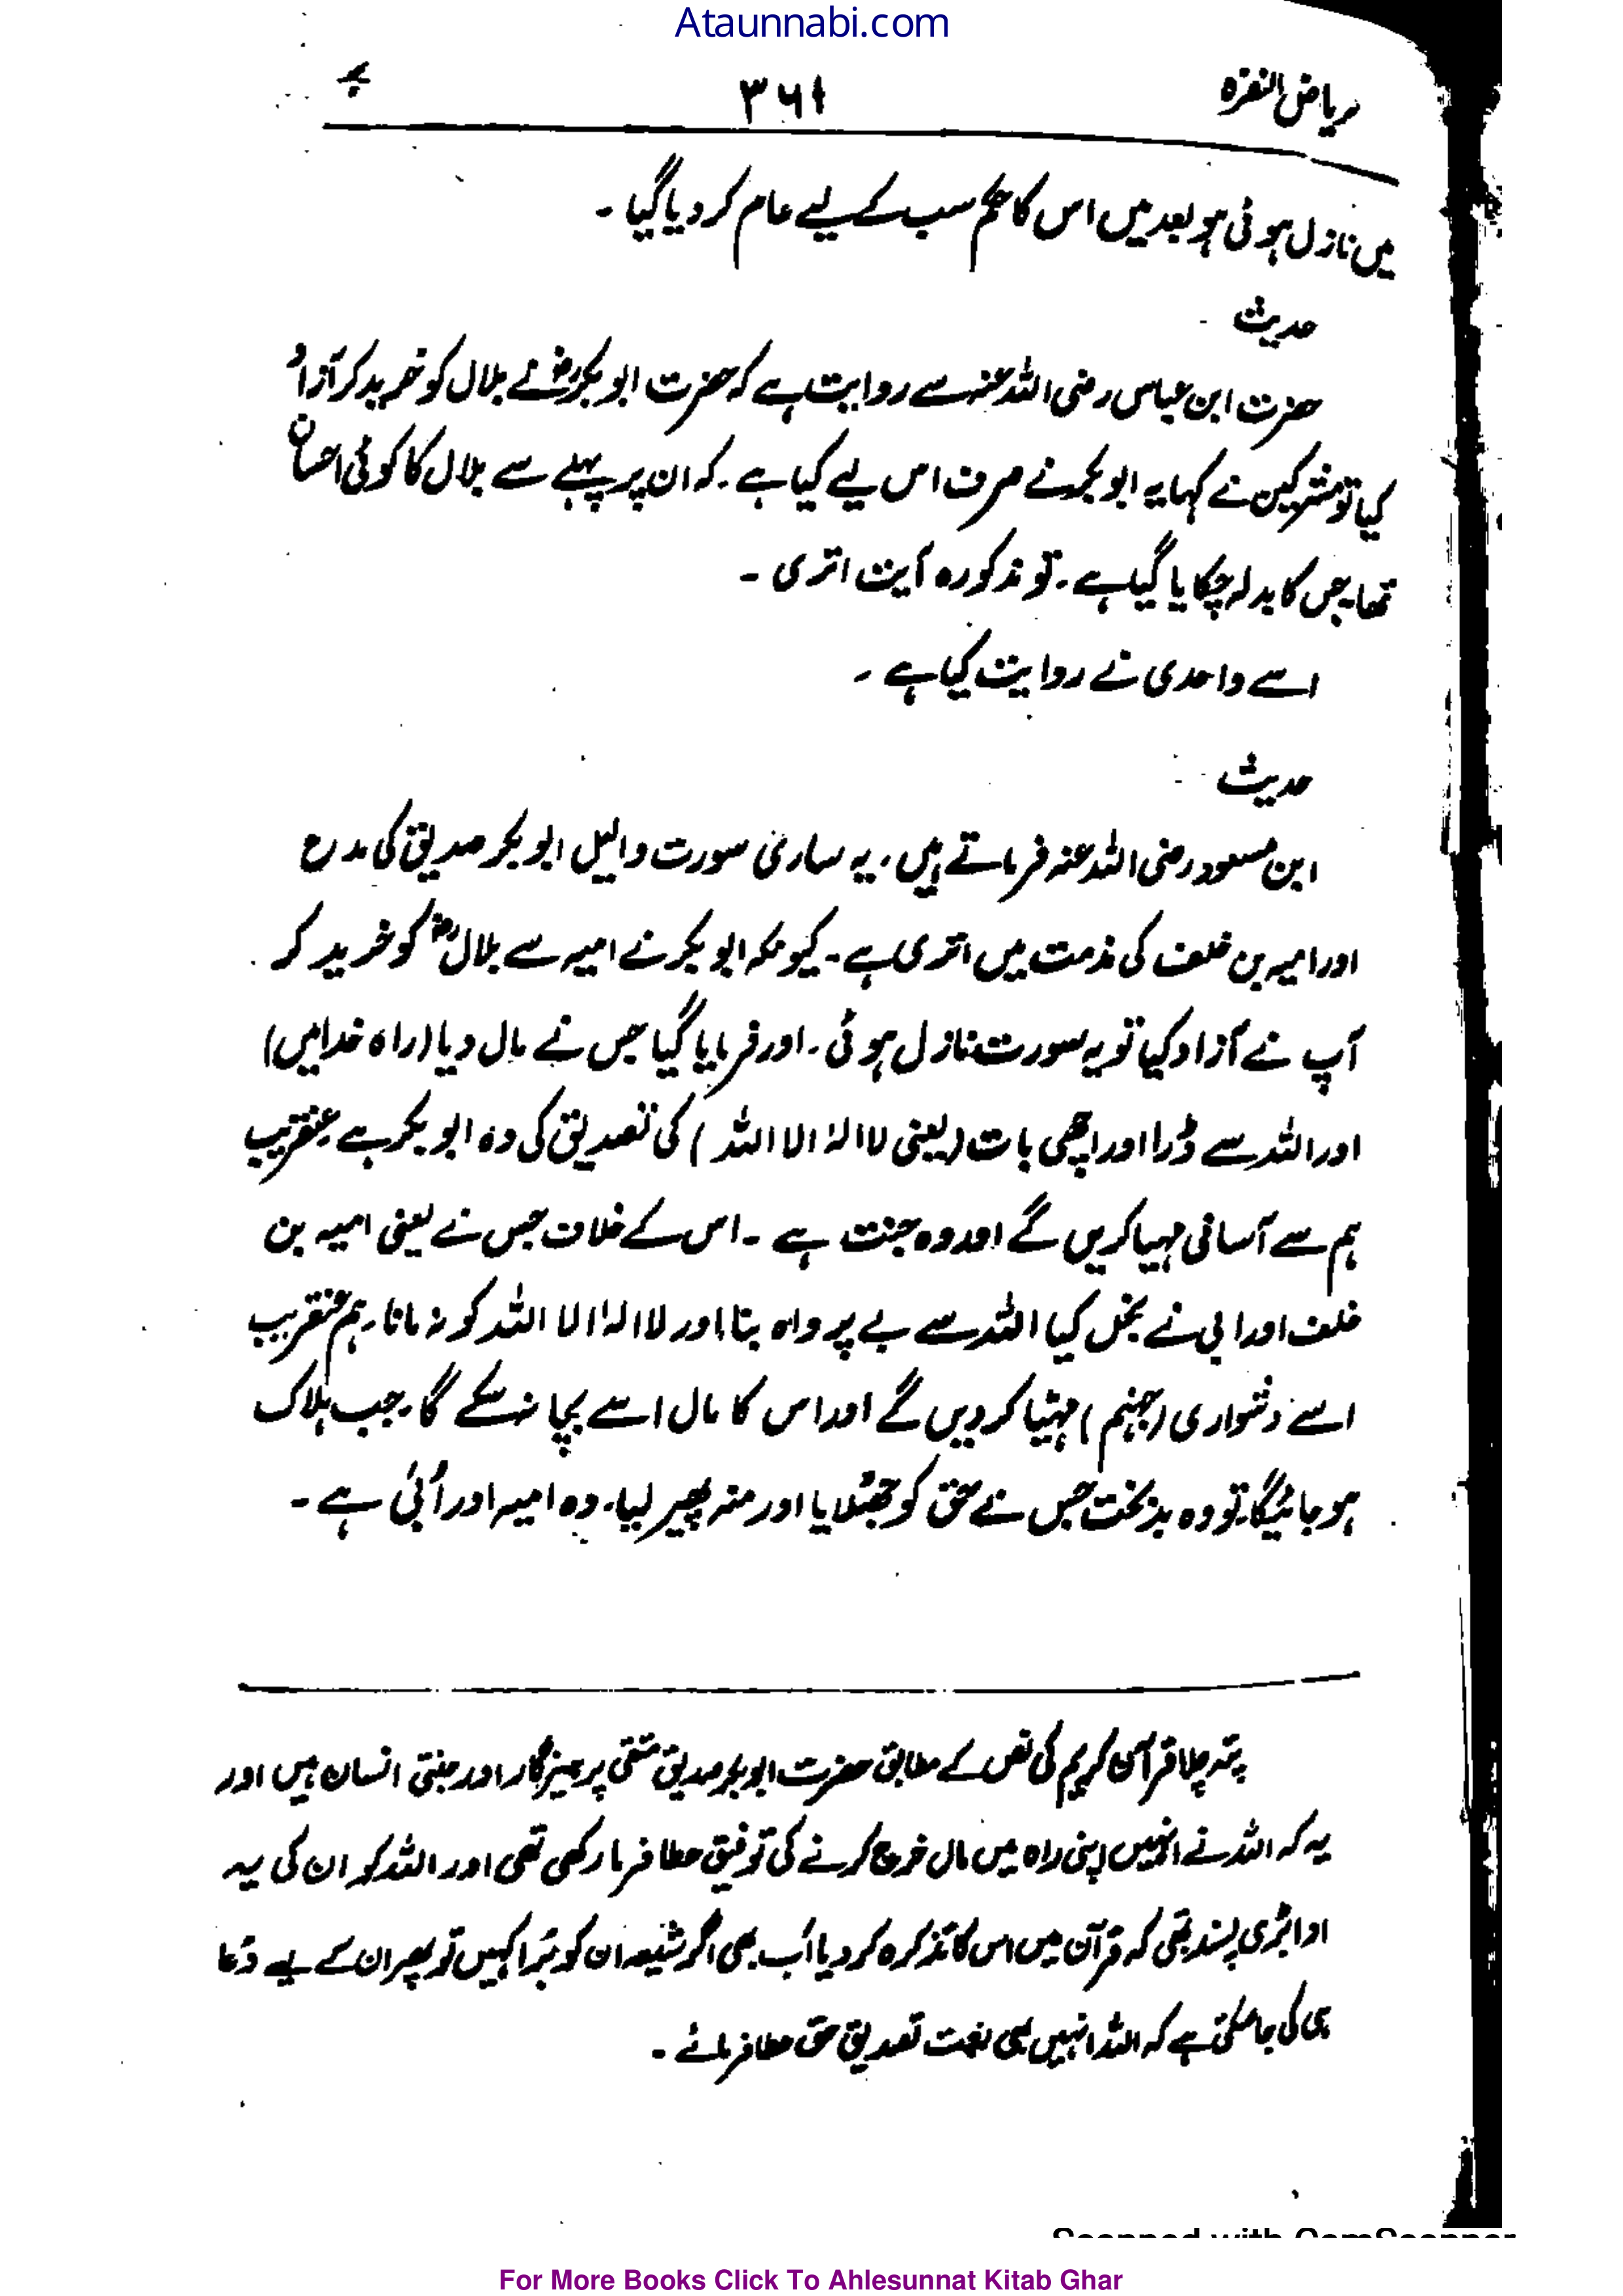 Ataunnabi.com
ریاض النضرہ ۳۶۱
میں نازل ہوئی ہو بعد میں اس کا حکم سب کے لیے عام کر دیا گیا ۔
حدیث -
حضرت ابن عباس رضی اللہ عنہ سے روایت ہے کہ حضرت ابوبکرؓ نے بلال کو خرید کر آزاد
کیا تو مشرکین نے کہا یہ ابوبکر نے صرف اس لیے کیا ہے ۔ کہ ان پر پہلے سے بلال کا کوئی احسان
تھا۔ جس کا بدلہ چکایا گیا ہے ۔ تو مذکورہ آیت اتری ۔
اسے واحدی نے روایت کیا ہے ۔
حدیث -
ابن مسعود رضی اللہ عنہ فرماتے ہیں ۔ یہ ساری سورت والیل ابوبکر صدیق کی مدح
اور امیہ بن خلف کی مذمت میں اتری ہے ۔ کیونکہ ابوبکر نے امیہ سے بلالؓ کو خرید کر
آپ نے آزاد کیا تو یہ سورت نازل ہوئی ۔ اور فرمایا گیا جس نے مال دیا (راہ خدا میں)
اور اللہ سے ڈرا اور اچھی بات (یعنی لا الہ الا اللہ) کی تصدیق کی وہ ابوبکر ہے عنقریب
ہم سے آسانی مہیا کریں گے اور وہ جنت ہے ۔ اس کے خلاف جس نے یعنی امیہ بن
خلف اور ابی نے بخل کیا اللہ سے بے پرواہ بنا اور لا الہ الا اللہ کو نہ مانا۔ ہم عنقریب
اسے دشواری (جہنم) مہیّا کر دیں گے اور اس کا مال اسے بچا نہ سکے گا۔ جب ہلاک
ہو جائیگا۔ تو وہ بدبخت جس نے حق کو جھٹلایا اور منہ پھیر لیا۔ وہ امیہ اور اُبَی ہے ۔
پتہ چلا قرآن کریم کی نص کے مطابق حضرت ابوبکر صدیق متقی پرہیزگار اور جنتی انسان ہیں اور
یہ کہ اللہ نے انہیں اپنی راہ میں مال خرچ کرنے کی توفیق عطا فرما رکھی تھی اور اللہ کو ان کی یہ
ادا بڑی پسند تھی کہ قرآن میں اس کا تذکرہ کر دیا اب بھی اگر شیعہ ان کو بُرا کہیں تو پھر ان کے لیے دُعا
ہی کی جا سکتی ہے کہ اللہ انہیں بھی نعمت تصدیق حق عطا فرمائے ۔
Scanned with CamScanner
For More Books Click To Ahlesunnat Kitab Ghar